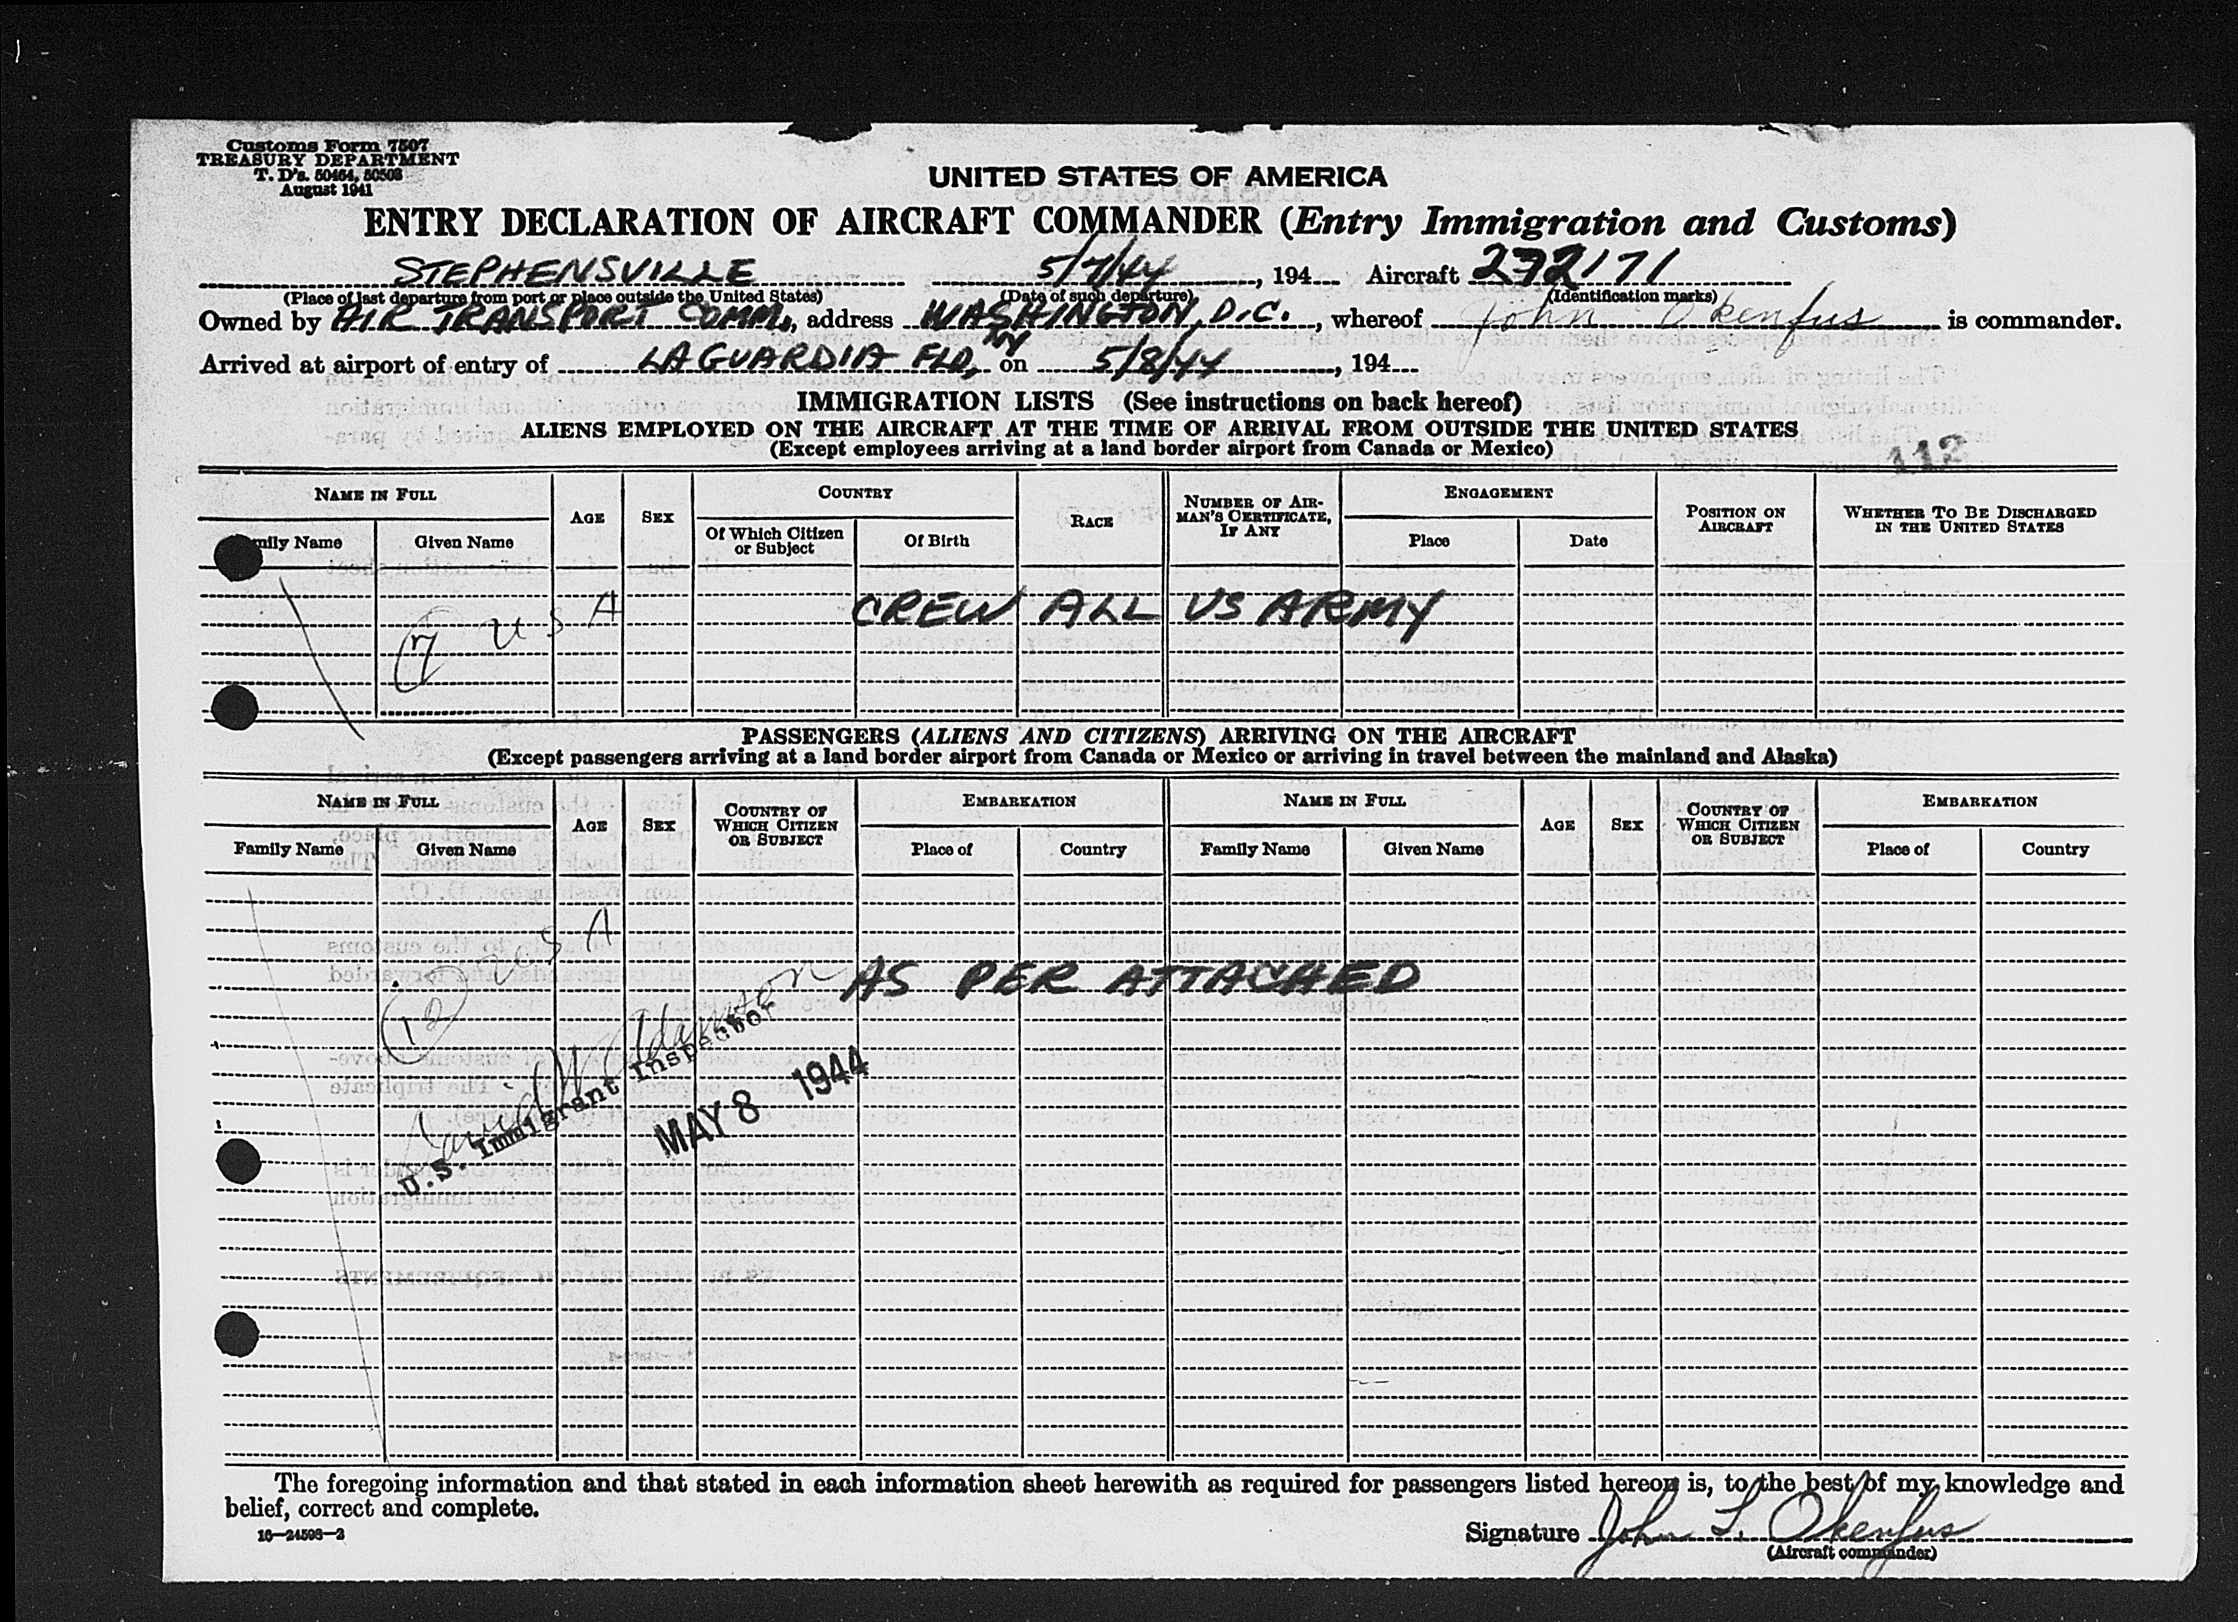 Customs Form 7507
TREASURY DEPARTMENT
T. D's. 50464, 50503
August 1941
UNITED STATES OF AMERICA
ENTRY DECLARATION OF AIRCRAFT COMMANDER (Entry Immigration and Customs)
STEPHENSVILLE 5/7/44, 194 Aircraft 272171
(Place of last departure from port or place outside the United States) (Date of such departure) (Identification marks)
Owned by AIR TRANSPORT COMM., address WASHINGTON, D.C., whereof John Okenfus is commander.
Arrived at airport of entry of LA GUARDIA FLD, NY on 5/8/44, 194
IMMIGRATION LISTS (See instructions on back hereof)
ALIENS EMPLOYED ON THE AIRCRAFT AT THE TIME OF ARRIVAL FROM OUTSIDE THE UNITED STATES
(Except employees arriving at a land border airport from Canada or Mexico)
112
NAME IN FULL AGE SEX COUNTRY RACE NUMBER OF AIRMAN'S CERTIFICATE, IF ANY ENGAGEMENT POSITION ON AIRCRAFT WHETHER TO BE DISCHARGED IN THE UNITED STATES
mily Name Given Name Of Which Citizen or Subject Of Birth Place Date
7 USA CREW ALL US ARMY
PASSENGERS (ALIENS AND CITIZENS) ARRIVING ON THE AIRCRAFT
(Except passengers arriving at a land border airport from Canada or Mexico or arriving in travel between the mainland and Alaska)
NAME IN FULL AGE SEX COUNTRY OF WHICH CITIZEN OR SUBJECT EMBARKATION NAME IN FULL AGE SEX COUNTRY OF WHICH CITIZEN OR SUBJECT EMBARKATION
Family Name Given Name Place of Country Family Name Given Name Place of Country
12 USA AS PER ATTACHED
U.S. Immigrant Inspector
MAY 8 1944
The foregoing information and that stated in each information sheet herewith as required for passengers listed hereon is, to the best of my knowledge and
belief, correct and complete.
16—24598-2
Signature John L. Okenfus
(Aircraft commander)